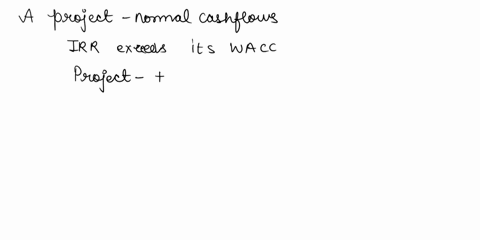 A project - normal cashflows
IRR exceeds its WACC
Project - +